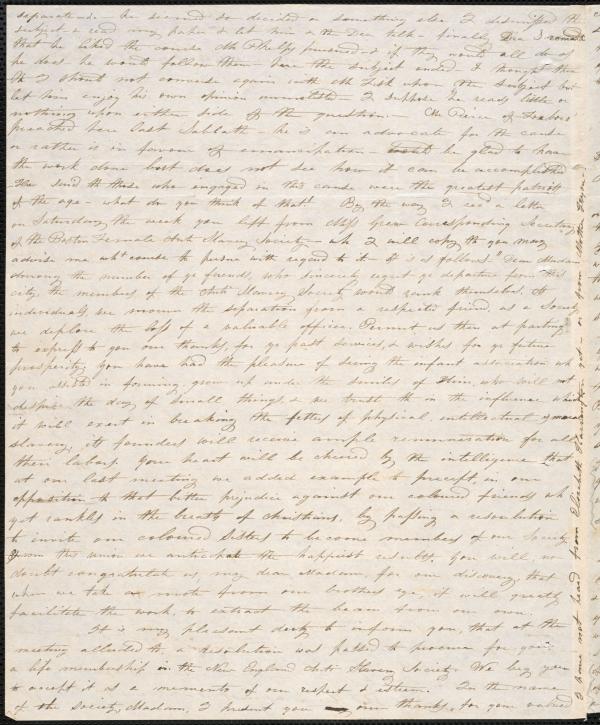 separated. He seemed so decided on something else I dismissed the
subject & read my paper & let him & the Dea talk - finally Dea I remarked
that he liked the course Mr Phelps pursued & if they would all do as
he does he would follow them - here the subject ended. I thought then
th I should not converse again with Mr Fisk upon the subject but
let him enjoy his own opinion unmolested - I suppose he reads little or
nothing upon either side of the question - Mr Peirce of Foxboro'
preached here last Sabbath - he is an advocate for the cause
or rather is in favour of emancipation - would be glad to have
the work done but does not see how it can be accomplished
He said th those who engaged in this cause were the greatest patriots
of the age - what do you think of that! By the way I recd a letter
on Saturday the week you left from Miss Grew Corresponding Secretary
of the Boston Female Anti Slavery Society - wh I will copy th you may
advise me wht course to pursue with regard to it - It is as follows. "Dear Madam
Among the number of yr friends, who sincerely regret yr departure from this
city, the members of the Anti Slavery Society would rank themselves. As
individuals, we mourn the separation from a respected friend, as a Society
we deplore the loss of a valuable officer. Permit us then at parting
to express to you our thanks, for yr past services, & wishes for yr future
prosperity. You have had the pleasure of seeing the infant association wh
you assisted in forming, grow up under the smiles of Him, who will not
despise the day of small things, & we trust th in the influence which
it will exert in breaking the fetters of physical, intellectual & moral
slavery, its founders will receive ample remuneration for all
their labors. Your heart will be cheered by the intelligence that
at our last meeting we added example to precept, in our
opposition to that bitter prejudice against our colored friends wh
yet rankles in the breasts of christians, by passing a resolution
to invite our coloured sisters to become members of our Society
From this union we anticipate the happiest results. You will, no
doubt congratulate us, my dear Madam, for our discovery that
when we take a mote from our brothers eye, it will greatly
facilitate the work, to extract the beam from our own.
It is my pleasant duty to inform you, that at the
meeting alluded to a resolution was passed to procure for you
a life membership in the New England Anti Slavery Society. We beg you
to accept it as a memento of our respect & esteem. In the name
of the Society, Madam, I present you our thanks, for your valued
I have not heard from Elizabeth yet - or from Mother